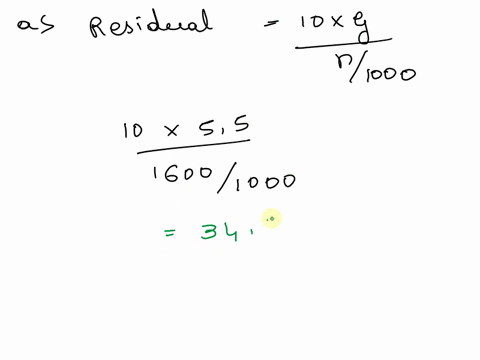 as Residual = 10 x g / n/1000
10 x 5.5 / 1600/1000
= 34.